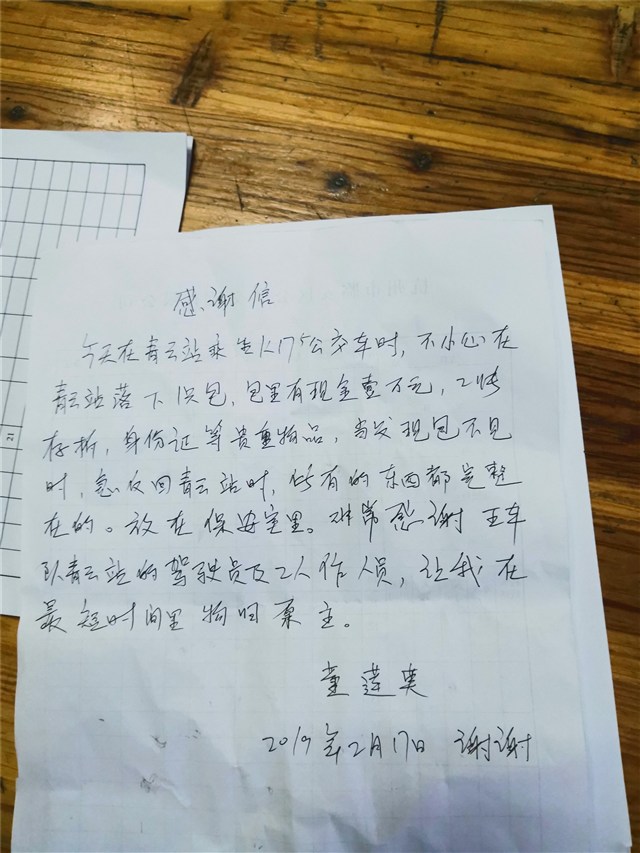 感谢信
今天在青云站乘坐K175公交车时,不小心在
青云站落下1只包,包里有现金壹万元,2张
存折,身份证等贵重物品,当发现包不见
时,急返回青云站时,所有的东西都完整
在的。放在保安室里。非常感谢 王车
队青云站的驾驶员及工作人员,让我在
最短时间里物归原主。
董莲英
2019年2月17日 谢谢
21